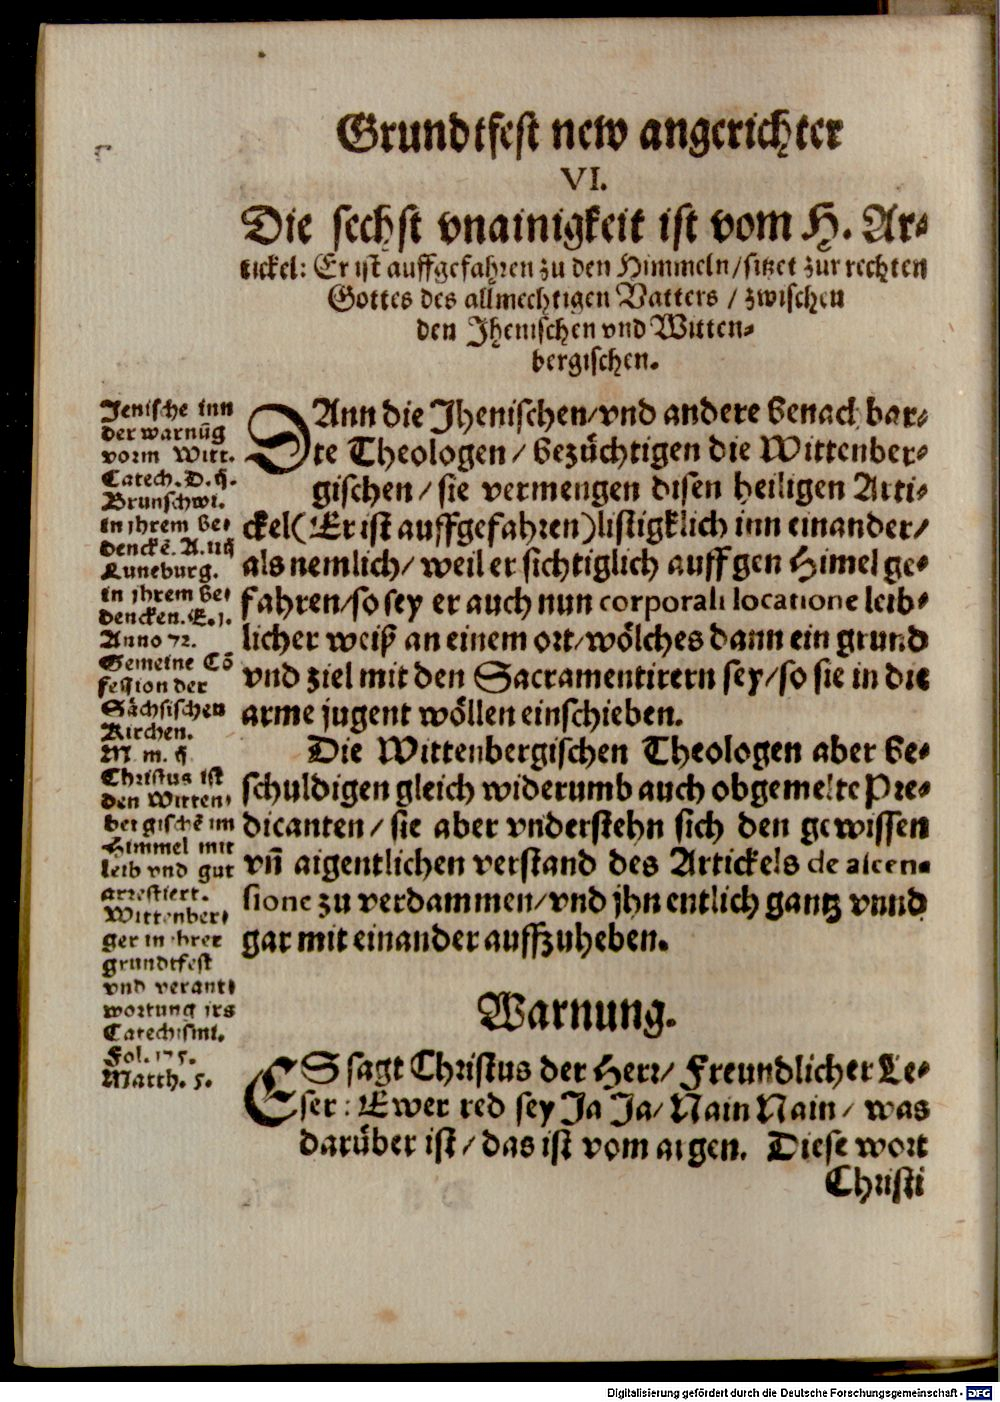 Grundtfest new angerichter
VI.
Die sechst vnainigkeit ist vom H. Ar⸗
tickel: Er ist auffgefahren zu den Himmeln/sitzet zur rechten
Gottes des allmechtigen Vatters / zwischen
den Jhenischen vnd Witten⸗
bergischen.
Jenische inn
der warnūg
vorm Witt.
Catech. D. ij.
Brunschwi.
in ihrem be⸗
denckē. A. iiij
Luneburg.
in ihrem be⸗
dencken. E. j.
Anno 72.
Gemeine Cō
fession der
Sächsischen
Kirchen.
M m. ij
Christus ist
den Witten⸗
bergischē im
Himmel mit
leib vnd gut
arrestiert.
Wittenber⸗
ger in ihrer
grundtfest
vnd verant⸗
wortung irs
Catechismi.
Fol. 175.
Matth. 5.
DAnn die Jhenischen/vnd andere benachbar⸗
te Theologen / bezüchtigen die Wittenber⸗
gischen / sie vermengen disen heiligen Arti⸗
ckel(Er ist auffgefahren)listigklich inn einander/
als nemlich/ weil er sichtiglich auff gen Himel ge⸗
fahren/so sey er auch nun corporali locatione leib⸗
licher weiß an einem ort/wölches dann ein grund
vnd ziel mit den Sacramentirern sey/so sie in die
arme jugent wöllen einschieben.
Die Wittenbergischen Theologen aber be⸗
schuldigen gleich widerumb auch obgemelte Pre⸗
dicanten / sie aber vnderstehn sich den gewissen
vñ aigentlichen verstand des Artickels de ascen⸗
sione zu verdammen/vnd jhn entlich gantz vnnd
gar mit einander auffzuheben.
Warnung.
ES sagt Christus der Herr/ Freundlicher Le⸗
ser: Ewer red sey Ja Ja/ Nain Nain / was
darüber ist / das ist vom argen. Diese wort
Christi
Digitalisierung gefördert durch die Deutsche Forschungsgemeinschaft - DFG